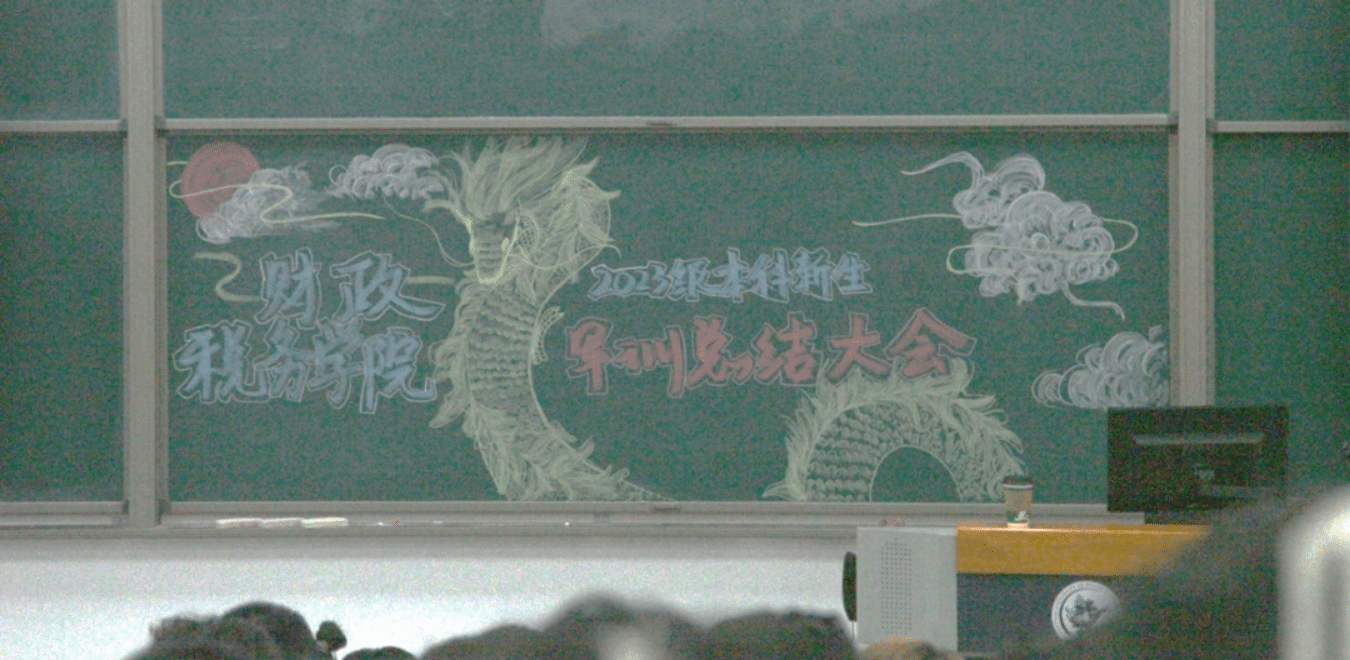 财政
税务学院
2023级本科新生
军训总结大会